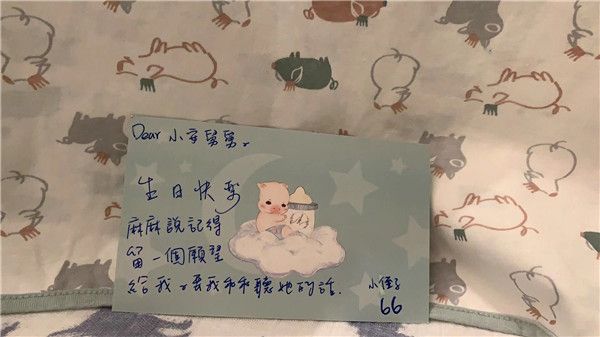 Dear 小舅舅。
生日快樂
麻麻說記得
留一個願望
給我。要我乖乖聽她的話.
小侄子
66